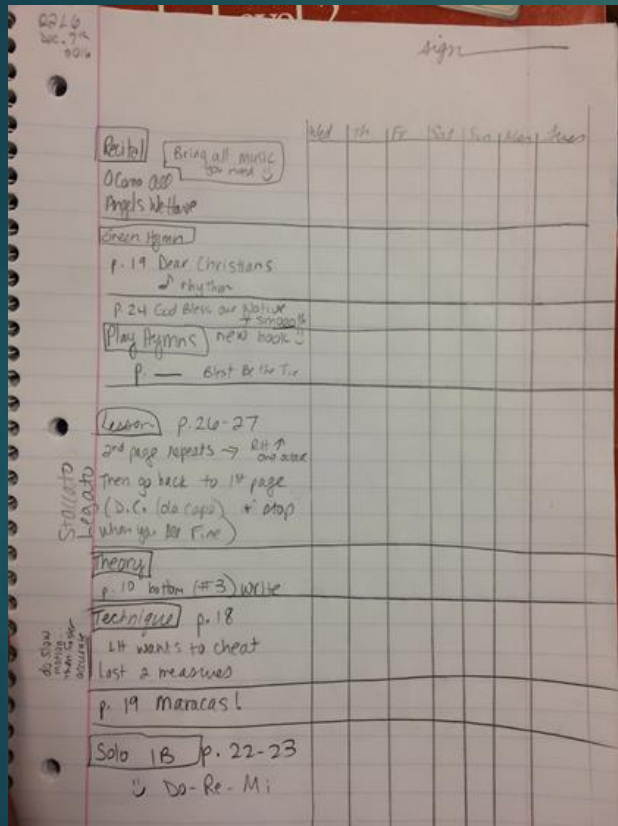 Dec. 7th
sign
Wed Th Fr Sat Sun Mon Tues
Recital
Bring all music
you need
O Come all
Angels We Have
Green Hymn
p. 19 Dear Christians
♪ rhythm
p. 24 God Bless our Native
+ smooth
Play Hymns new book
p. — Blest Be the Tie
Lesson p. 26-27
2nd page repeats → RH ↑
one octave
Then go back to 1st page
(D.C. (da capo) + stop
when you see Fine)
Staccato
Legato
Theory
p. 10 bottom (#3) write
Technique p. 18
LH wants to cheat
last 2 measures
do slow
motion
then faster
accurate
p. 19 Maracas!
Solo 1B p. 22-23
Do-Re-Mi